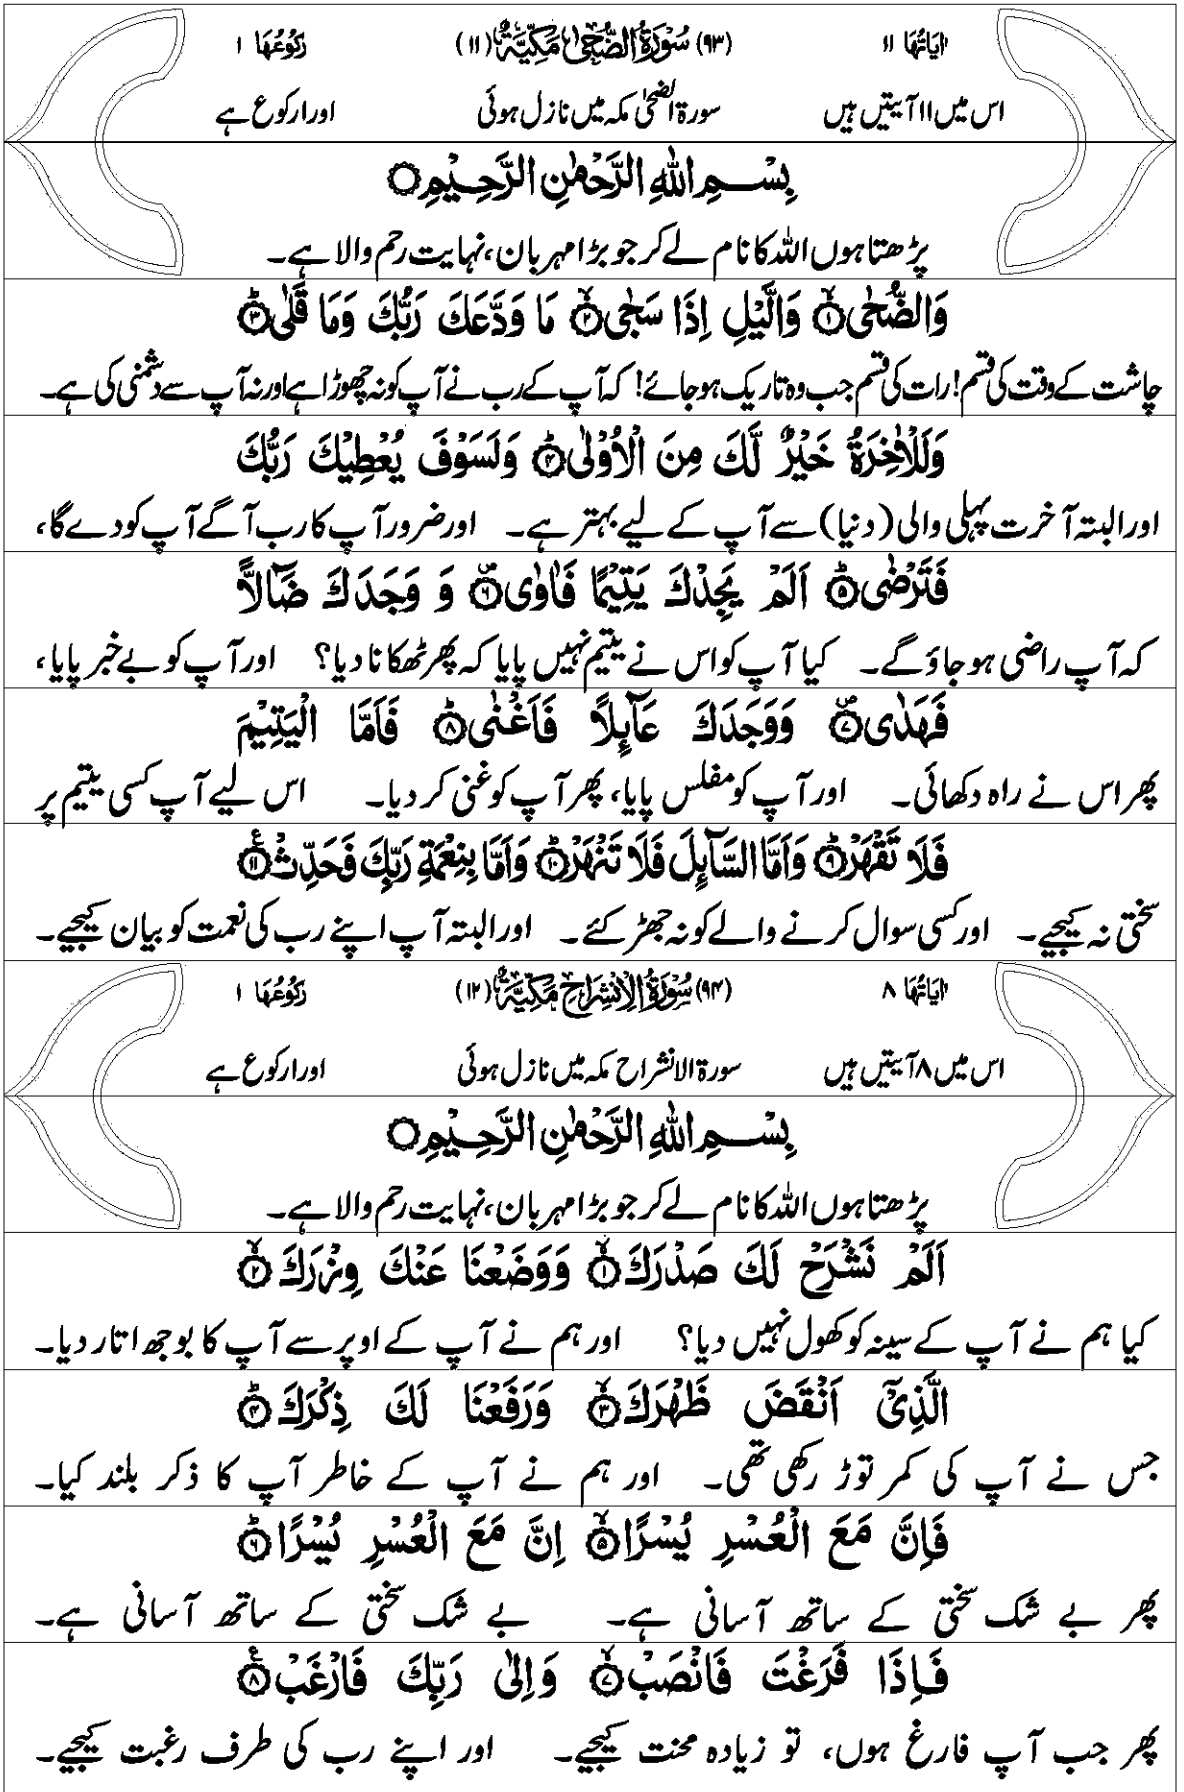 اٰیَاتُهَا ۱۱ (۹۳) سُوْرَةُ الضُّحٰی مَكِّیَّةٌ (۱۱) رُكُوْعُهَا ۱
اس میں ۱۱ آیتیں ہیں سورۃ الضحیٰ مکہ میں نازل ہوئی اور ۱ رکوع ہے
بِسْمِ اللّٰهِ الرَّحْمٰنِ الرَّحِیْمِ○
پڑھتا ہوں اللہ کا نام لے کر جو بڑا مہربان، نہایت رحم والا ہے۔
وَالضُّحٰی۝۱ وَالَّیْلِ اِذَا سَجٰی۝۲ مَا وَدَّعَكَ رَبُّكَ وَمَا قَلٰی۝۳
چاشت کے وقت کی قسم! رات کی قسم جب وہ تاریک ہو جائے! کہ آپ کے رب نے آپ کو نہ چھوڑا ہے اور نہ آپ سے دشمنی کی ہے۔
وَلَلْاٰخِرَةُ خَیْرٌ لَّكَ مِنَ الْاُوْلٰی۝۴ وَلَسَوْفَ یُعْطِیْكَ رَبُّكَ
اور البتہ آخرت پہلی والی (دنیا) سے آپ کے لیے بہتر ہے۔ اور ضرور آپ کا رب آگے آپ کو دے گا،
فَتَرْضٰی۝۵ اَلَمْ یَجِدْكَ یَتِیْمًا فَاٰوٰی۝۶ وَ وَجَدَكَ ضَآلًّا
کہ آپ راضی ہو جاؤ گے۔ کیا آپ کو اس نے یتیم نہیں پایا کہ پھر ٹھکانا دیا؟ اور آپ کو بے خبر پایا،
فَهَدٰی۝۷ وَوَجَدَكَ عَآىِٕلًا فَاَغْنٰی۝۸ فَاَمَّا الْیَتِیْمَ
پھر اس نے راہ دکھائی۔ اور آپ کو مفلس پایا، پھر آپ کو غنی کر دیا۔ اس لیے آپ کسی یتیم پر
فَلَا تَقْهَرْ۝۹ وَاَمَّا السَّآىِٕلَ فَلَا تَنْهَرْ۝۱۰ وَاَمَّا بِنِعْمَةِ رَبِّكَ فَحَدِّثْ۝۱۱
سختی نہ کیجیے۔ اور کسی سوال کرنے والے کو نہ جھڑکئے۔ اور البتہ آپ اپنے رب کی نعمت کو بیان کیجیے۔
اٰیَاتُهَا ۸ (۹۴) سُوْرَةُ الْاِنْشِرَاحِ مَكِّیَّةٌ (۱۲) رُكُوْعُهَا ۱
اس میں ۸ آیتیں ہیں سورۃ الانشراح مکہ میں نازل ہوئی اور ۱ رکوع ہے
بِسْمِ اللّٰهِ الرَّحْمٰنِ الرَّحِیْمِ○
پڑھتا ہوں اللہ کا نام لے کر جو بڑا مہربان، نہایت رحم والا ہے۔
اَلَمْ نَشْرَحْ لَكَ صَدْرَكَ۝۱ وَوَضَعْنَا عَنْكَ وِزْرَكَ۝۲
کیا ہم نے آپ کے سینہ کو کھول نہیں دیا؟ اور ہم نے آپ کے اوپر سے آپ کا بوجھ اتار دیا۔
الَّذِیْۤ اَنْقَضَ ظَهْرَكَ۝۳ وَرَفَعْنَا لَكَ ذِكْرَكَ۝۴
جس نے آپ کی کمر توڑ رکھی تھی۔ اور ہم نے آپ کے خاطر آپ کا ذکر بلند کیا۔
فَاِنَّ مَعَ الْعُسْرِ یُسْرًا۝۵ اِنَّ مَعَ الْعُسْرِ یُسْرًا۝۶
پھر بے شک سختی کے ساتھ آسانی ہے۔ بے شک سختی کے ساتھ آسانی ہے۔
فَاِذَا فَرَغْتَ فَانْصَبْ۝۷ وَاِلٰی رَبِّكَ فَارْغَبْ۝۸
پھر جب آپ فارغ ہوں، تو زیادہ محنت کیجیے۔ اور اپنے رب کی طرف رغبت کیجیے۔